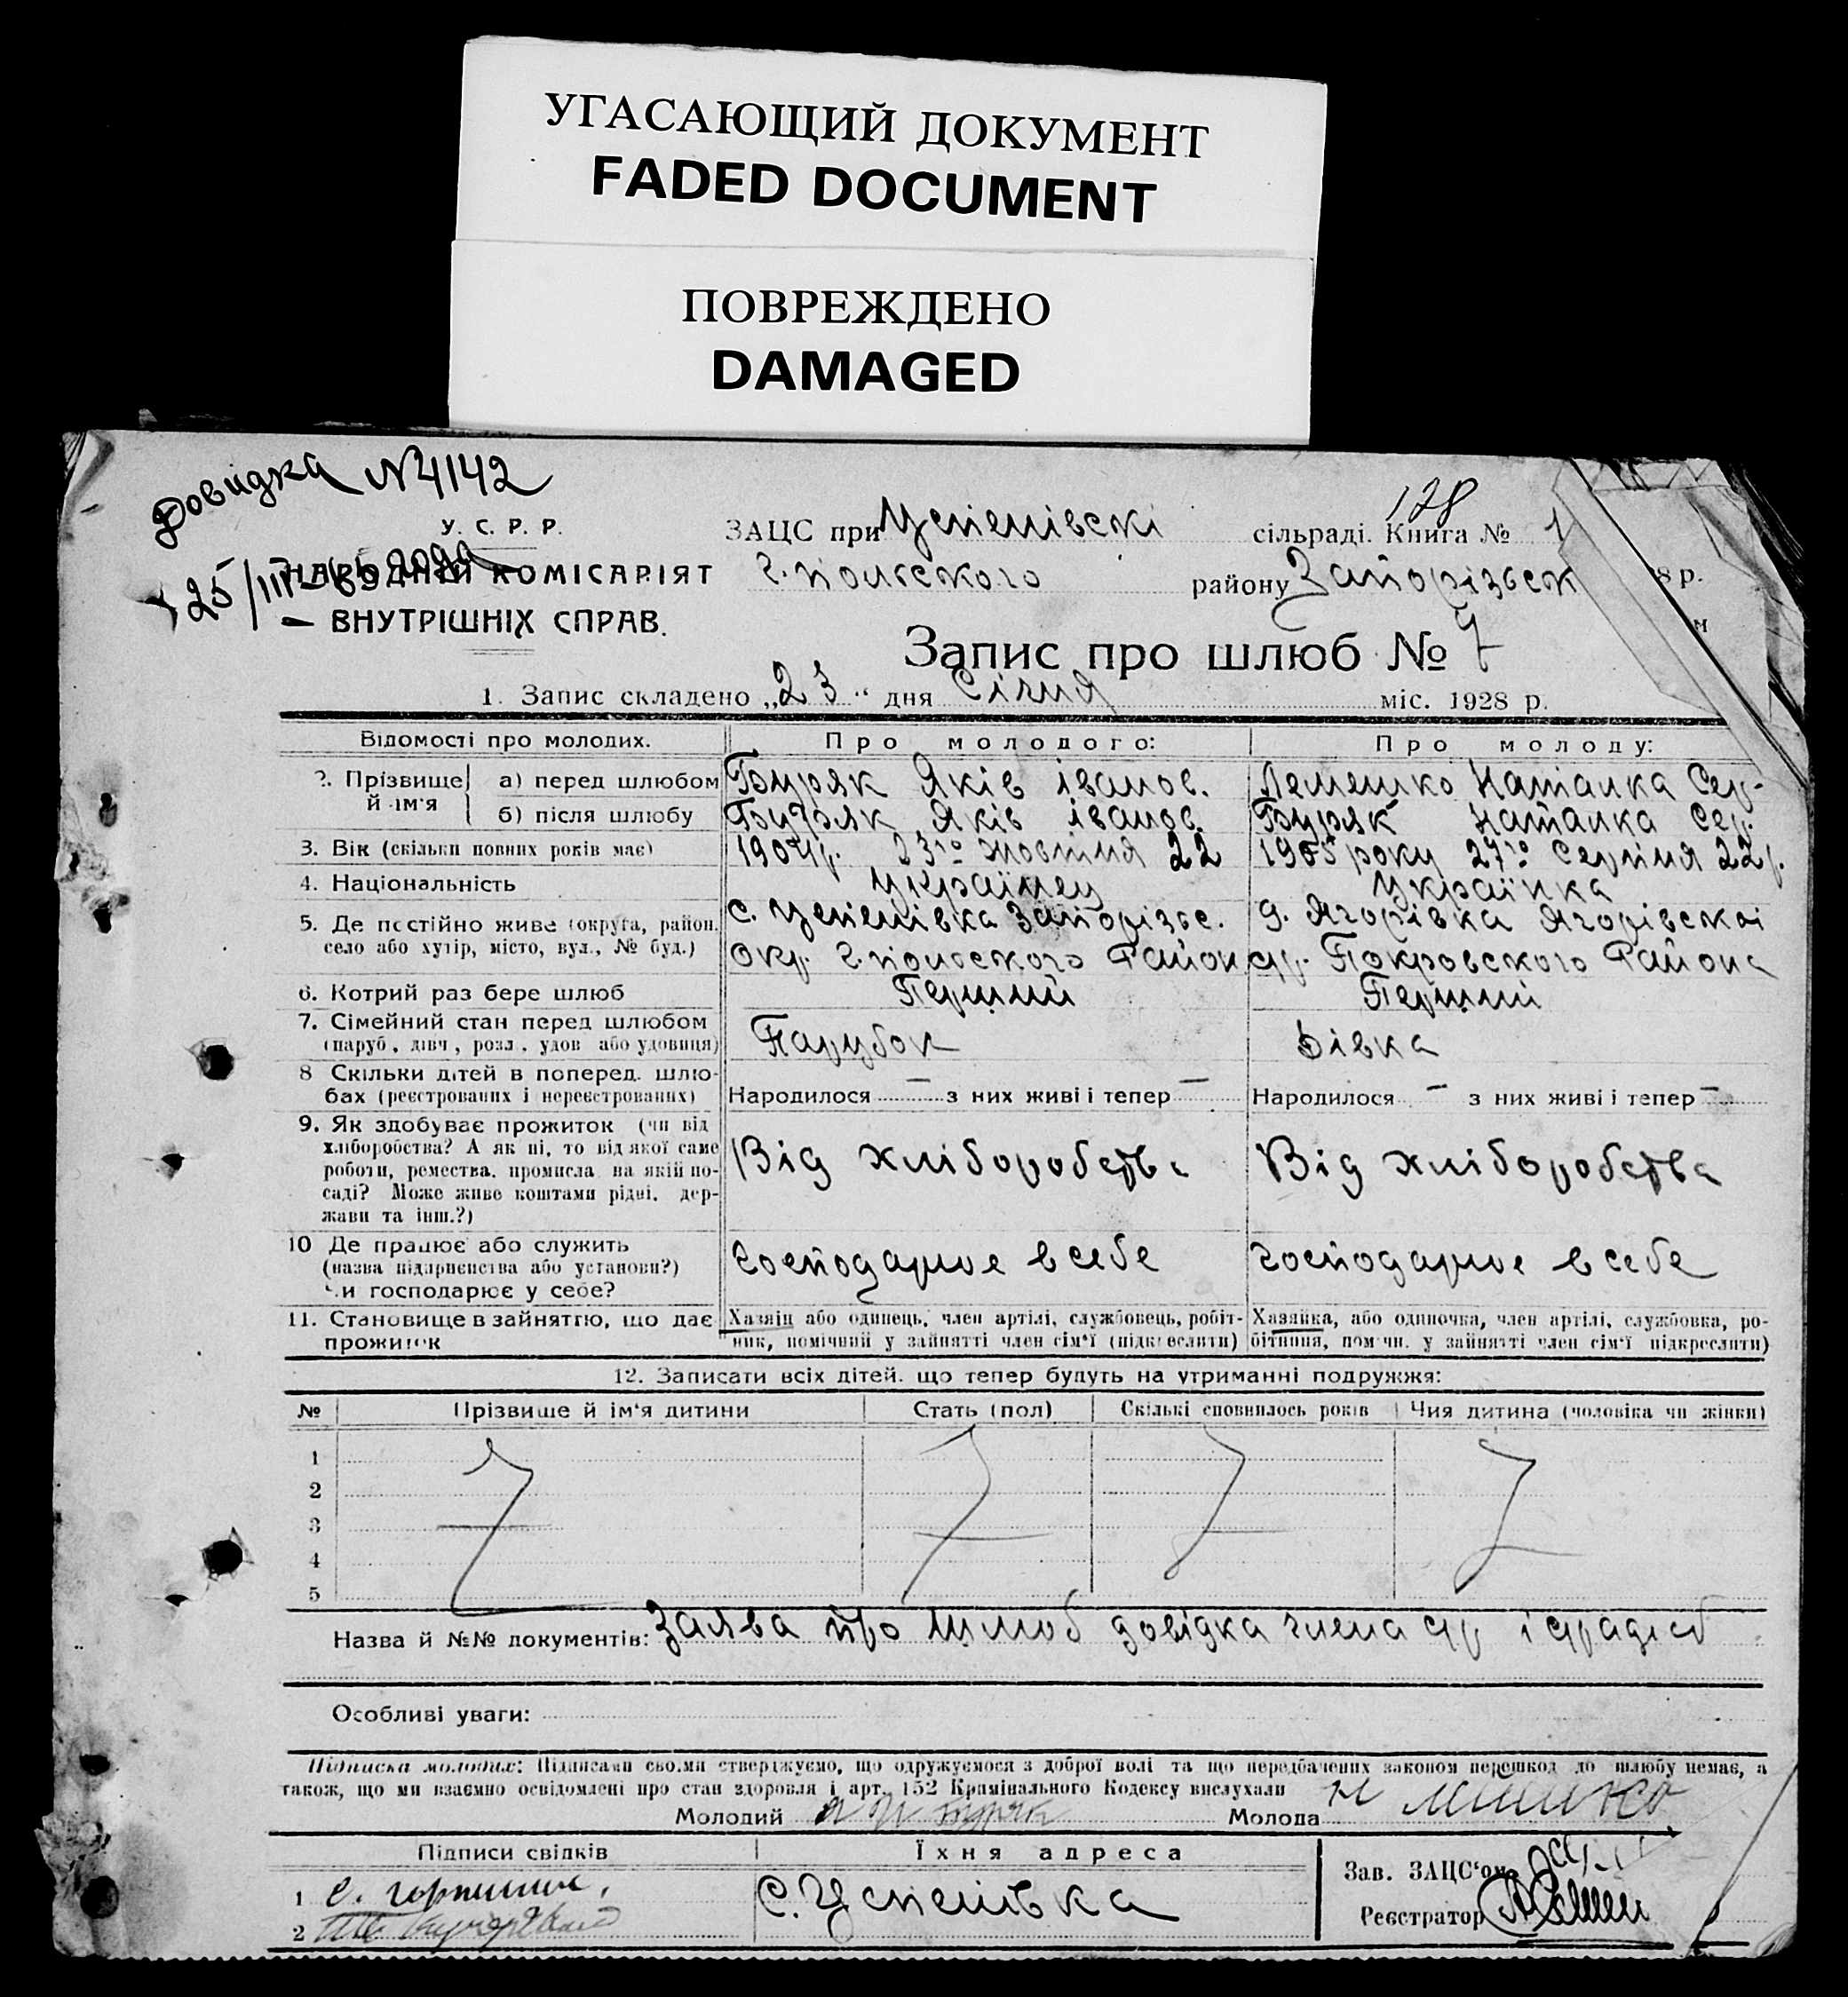 УГАСАЮЩИЙ ДОКУМЕНТ
FADED DOCUMENT
ПОВРЕЖДЕНО
DAMAGED
Довидка N4142
25/III-69 года
У. С. Р. Р.
НАРОДНИЙ КОМІСАРІЯТ
ВНУТРІШНІХ СПРАВ.
ЗАЦС при Успенівскі сільраді. Книга № 1
128
Г.польского району Запорізьск
8 р.
Запис про шлюб № 7
1. Запис складено „23" дня Січня міс. 1928 р.
Відомості про молодих. Про молодого: Про молоду:
2. Прізвище й ім'я а) перед шлюбом Буряк Яків іванов. Лемешко Наталка Сер-
б) після шлюбу Буряк Яків іванов. Буряк Наталка Сер.
3. Вік (скільки повних років має) 1904р. 23го жовтня 22 1905 року 27го Серпня 22р.
4. Національність Українец Українка
5. Де постійно живе (округа, район, село або хутір, місто, вул., № буд.) с. Успенівка Запорізьс. окр. Г.польского Район д. Ягорівка Ягорівскоі ср. Покровского Района
6. Котрий раз бере шлюб Перший Перший
7. Сімейний стан перед шлюбом (паруб., дівч., розл., удов або удовиця) Парубок Дівка
8 Скільки дітей в поперед. шлюбах (реєстрованих і нереєстрованих) Народилося — з них живі і тепер — Народилося — з них живі і тепер —
9. Як здобуває прожиток (чи від хліборобства? А як ні, то від якої саме роботи, ремества, промисла на якій посаді? Може живе коштами рідні, держави та інш.?) Від хліборобства Від хліборобства
10 Де працює або служить (назва підприємства або установи?) Чи господарює у себе? Господарює в себе Господарює в себе
11. Становище в зайняттю, що дає прожиток Хазяїн або одинець, член артілі, службовець, робітник, помічний у зайнятті член сім'ї (підкреслити) Хазяйка, або одиночка, член артілі, службовка, робітниця, помічн. у зайнятті член сім'ї підкреслити)
12. Записати всіх дітей, що тепер будуть на утриманні подружжя:
№ Прізвище й ім'я дитини Стать (пол) Скількі сповнилось років Чия дитина (чоловіка чи жінки)
1
2
3
4
5
Назва й №№ документів: Заява про шлюб довідка члена ср і
Особливі уваги:
Підписка молодих: Підписами своїми стверджуємо, що одружуємося з доброї волі та що передбачених законом перешкод до шлюбу немає, а
також, що ми взаємно освідомлені про стан здоровля і арт. 152 Кримінального Кодексу вислухали
Молодий Я И Буряк Молода Н
Підписи свідків Їхня адреса
Зав. ЗАЦС'ом
1 С.
С. Успенівка
2
Реєстратор